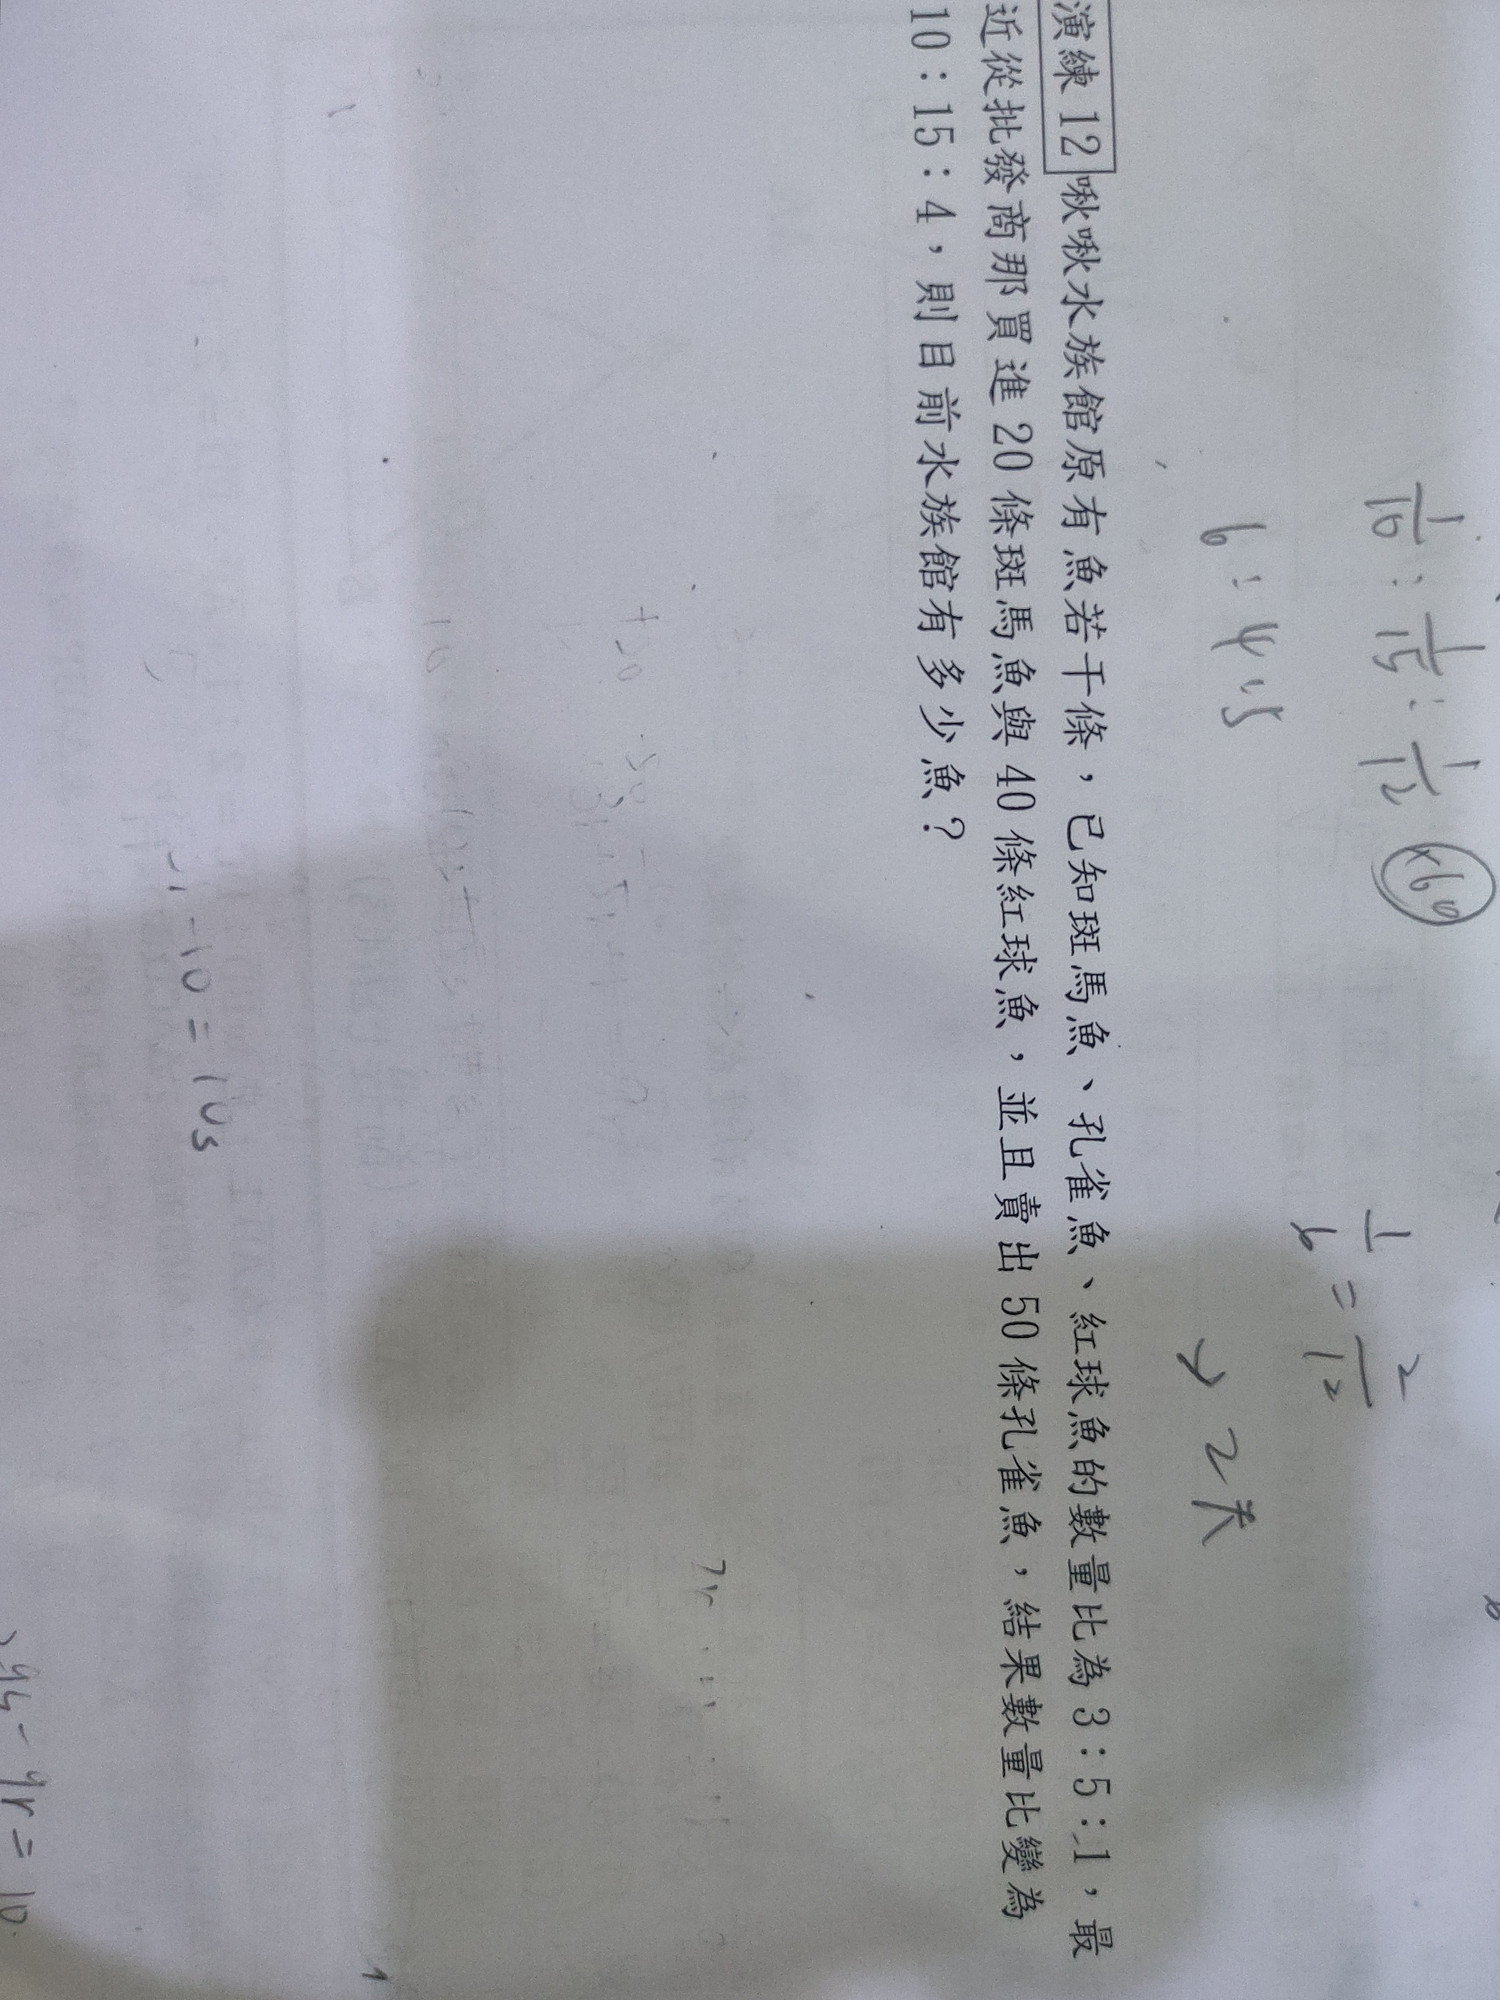 1/10 : 1/15 : 1/12 ×60
6 : 4 : 5
1/6 = 2/12
→ 2天
演練 12 啾啾水族館原有魚若干條，已知斑馬魚、孔雀魚、紅球魚的數量比為 3：5：1，最
近從批發商那買進 20 條斑馬魚與 40 條紅球魚，並且賣出 50 條孔雀魚，結果數量比變為
10：15：4，則目前水族館有多少魚？
+20
-10 = 10s
9s - 9r = 10